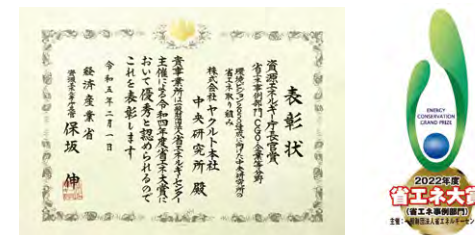 表彰状
資源エネルギー庁長官賞
省エネ事例部門 CGO・企業等分野
環境ビジョン2050達成に向けた中央研究所の
省エネ取り組み
株式会社ヤクルト本社
中央研究所 殿
貴事業所は一般財団法人省エネルギーセンター
主催による令和四年度省エネ大賞に
おいて優秀と認められるので
これを表彰します
令和五年二月一日
経済産業省
資源エネルギー庁長官 保坂 伸
ENERGY
CONSERVATION
GRAND PRIZE
2022年度
省エネ大賞
(省エネ事例部門)
主催:一般財団法人省エネルギーセンター